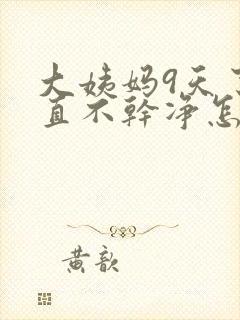 大姨妈9天了
直不幹净怎
黄歆